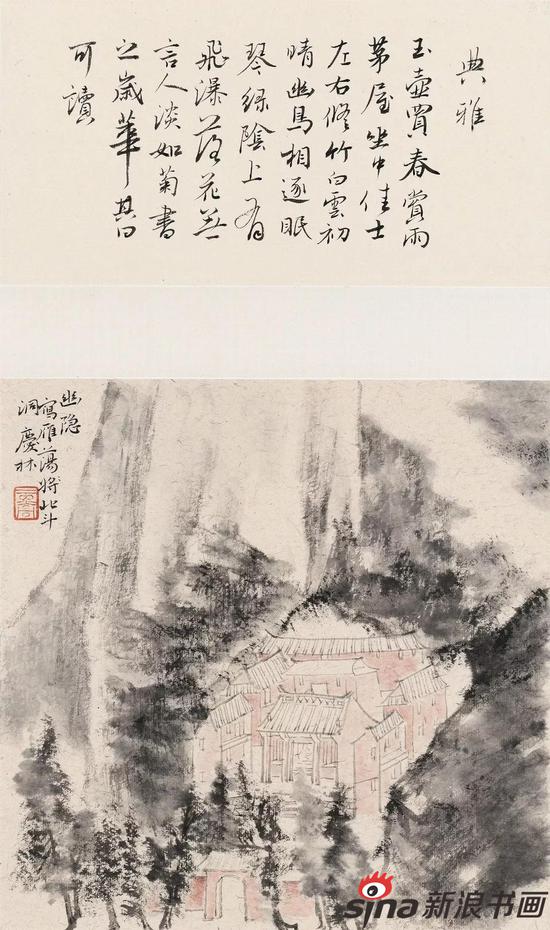 典雅
玉壺買春賞雨
茅屋坐中佳士
左右脩竹白雲初
晴幽鳥相逐眠
琴綠陰上有
飛瀑落花無
言人淡如菊書
之歲華其曰
可讀
幽隐
寫雁蕩将北斗
洞慶林
sina新浪书画